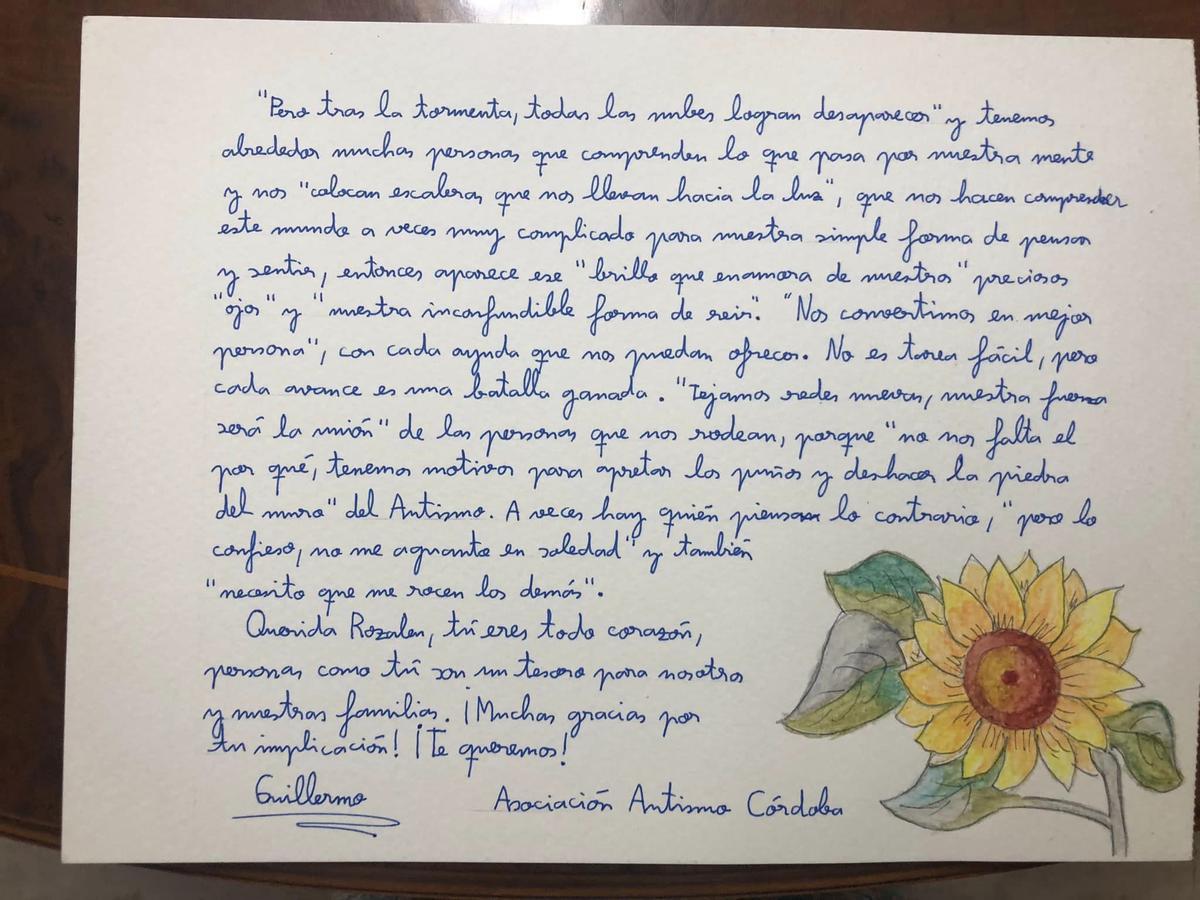 "Pero tras la tormenta, todas las nubes logran desaparecer" y tenemos
alrededor muchas personas que comprenden lo que pasa por nuestra mente
y nos "colocan escaleras que nos llevan hacia la luz", que nos hacen comprender
este mundo a veces muy complicado para nuestra simple forma de pensar
y sentir, entonces aparece ese "brillo que enamora de nuestros" preciosos
"ojos" y "nuestra inconfundible forma de reir". "Nos convertimos en mejor
persona", con cada ayuda que nos puedan ofrecer. No es tarea fácil, pero
cada avance es una batalla ganada. "Tejamos redes nuevas, nuestra fuerza
será la unión" de las personas que nos rodean, porque "no nos falta el
por qué, tenemos motivos para apretar los puños y deshacer la piedra
del muro" del Autismo. A veces hay quién piensa lo contrario, "pero lo
confieso, no me aguanto en soledad" y también
"necesito que me rocen los demás".
Querida Rozalen, tú eres todo corazón,
personas como tú son un tesoro para nosotros
y nuestras familias. ¡Muchas gracias por
tu implicación! ¡Te queremos!
Guillermo Asociación Autismo Córdoba